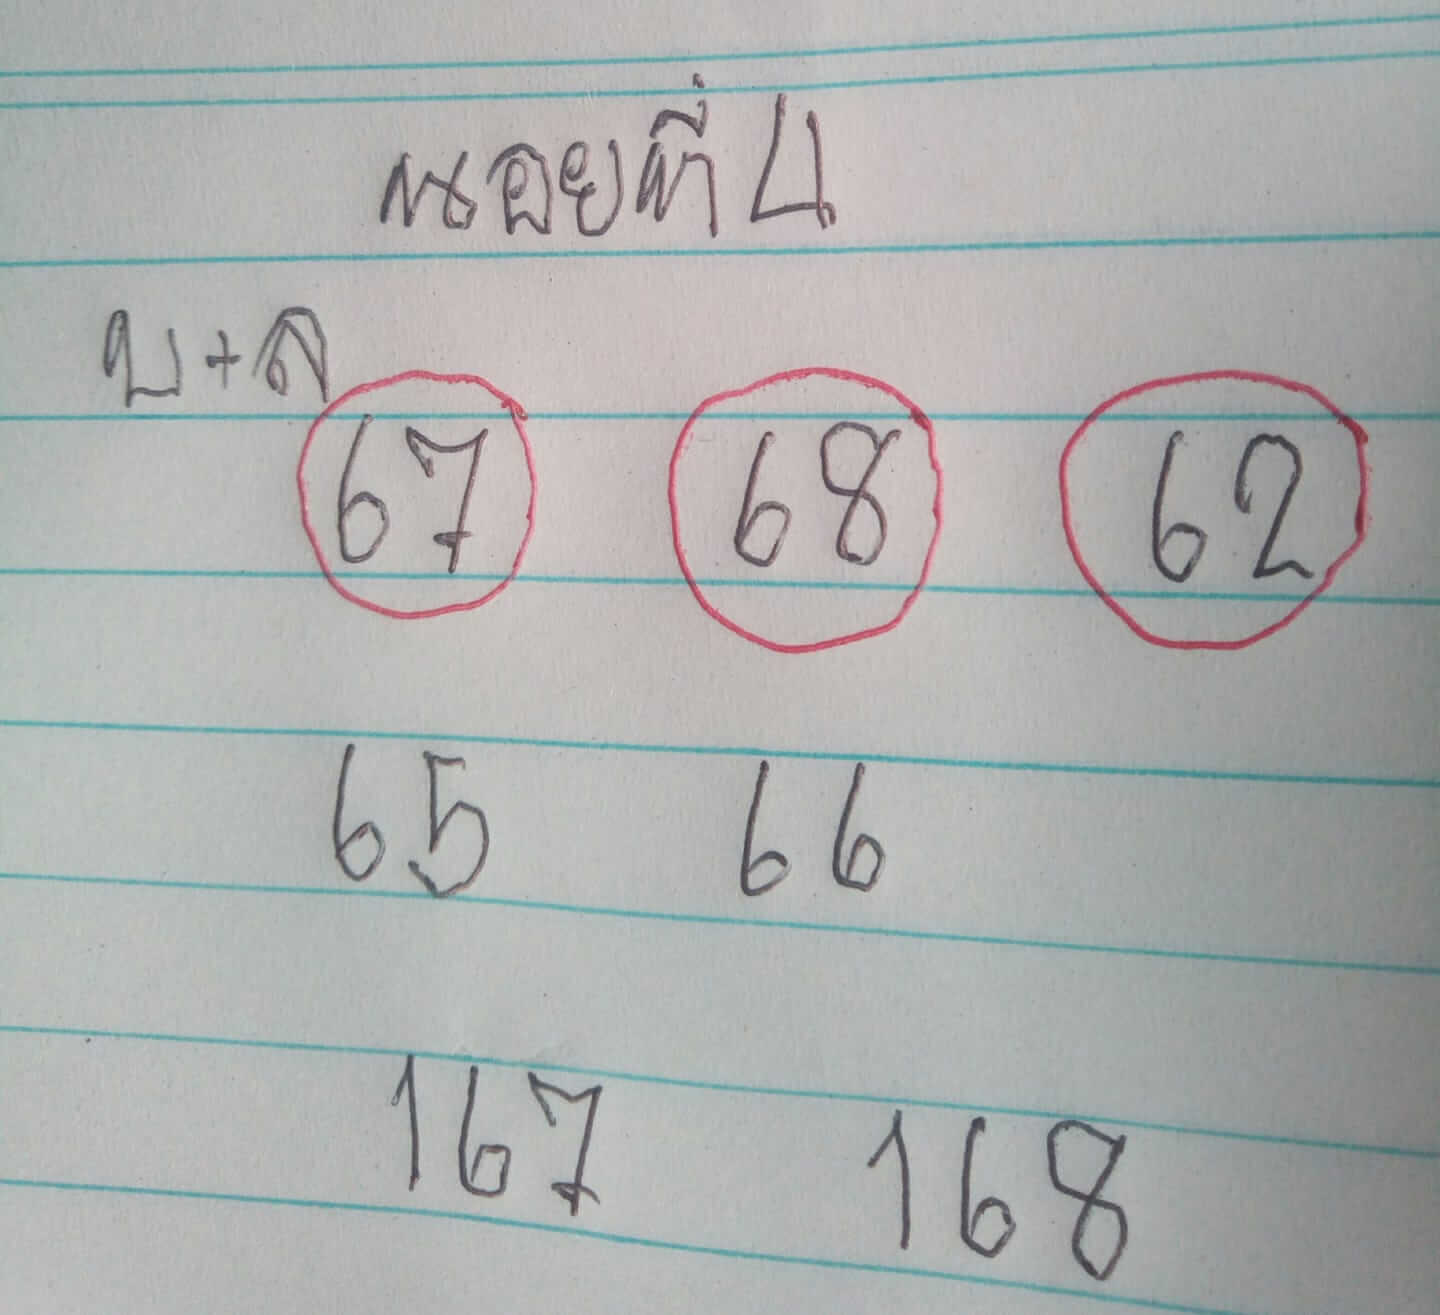 หน่อยที่ 4
บ+ล
67 68 62
65 66
167 168